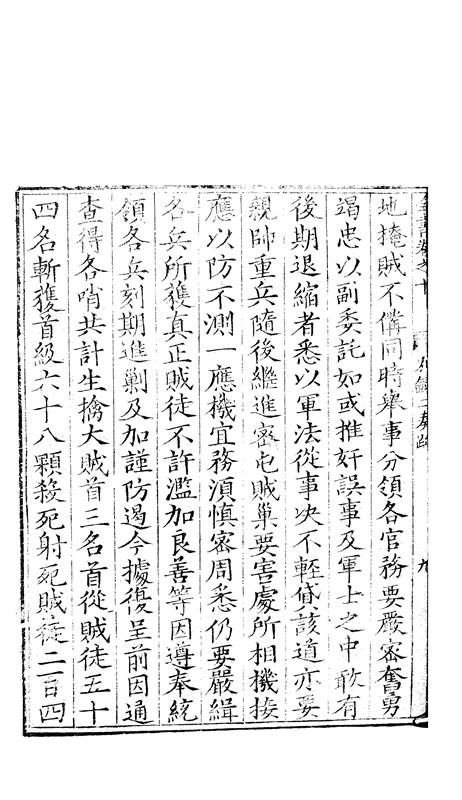 卷之十 別錄二奏疏 九
地掩賊不備同時舉事分領各官務要嚴密奮勇
竭忠以副委託如或推奸誤事及軍士之中敢有
後期退縮者悉以軍法從事决不輕貸該道亦要
親帥重兵隨後繼進密屯賊巢要害處所相機接
應以防不測一應機宜務湏慎密周悉仍要嚴緝
各兵所獲真正賊徒不許濫加良善等因遵奉統
領各兵刻期進剿及加謹防遏今據復呈前因通
查得各哨共計生擒大賊首三名首從賊徒五十
四名斬獲首級六十八顆殺死射死賊徒二百四